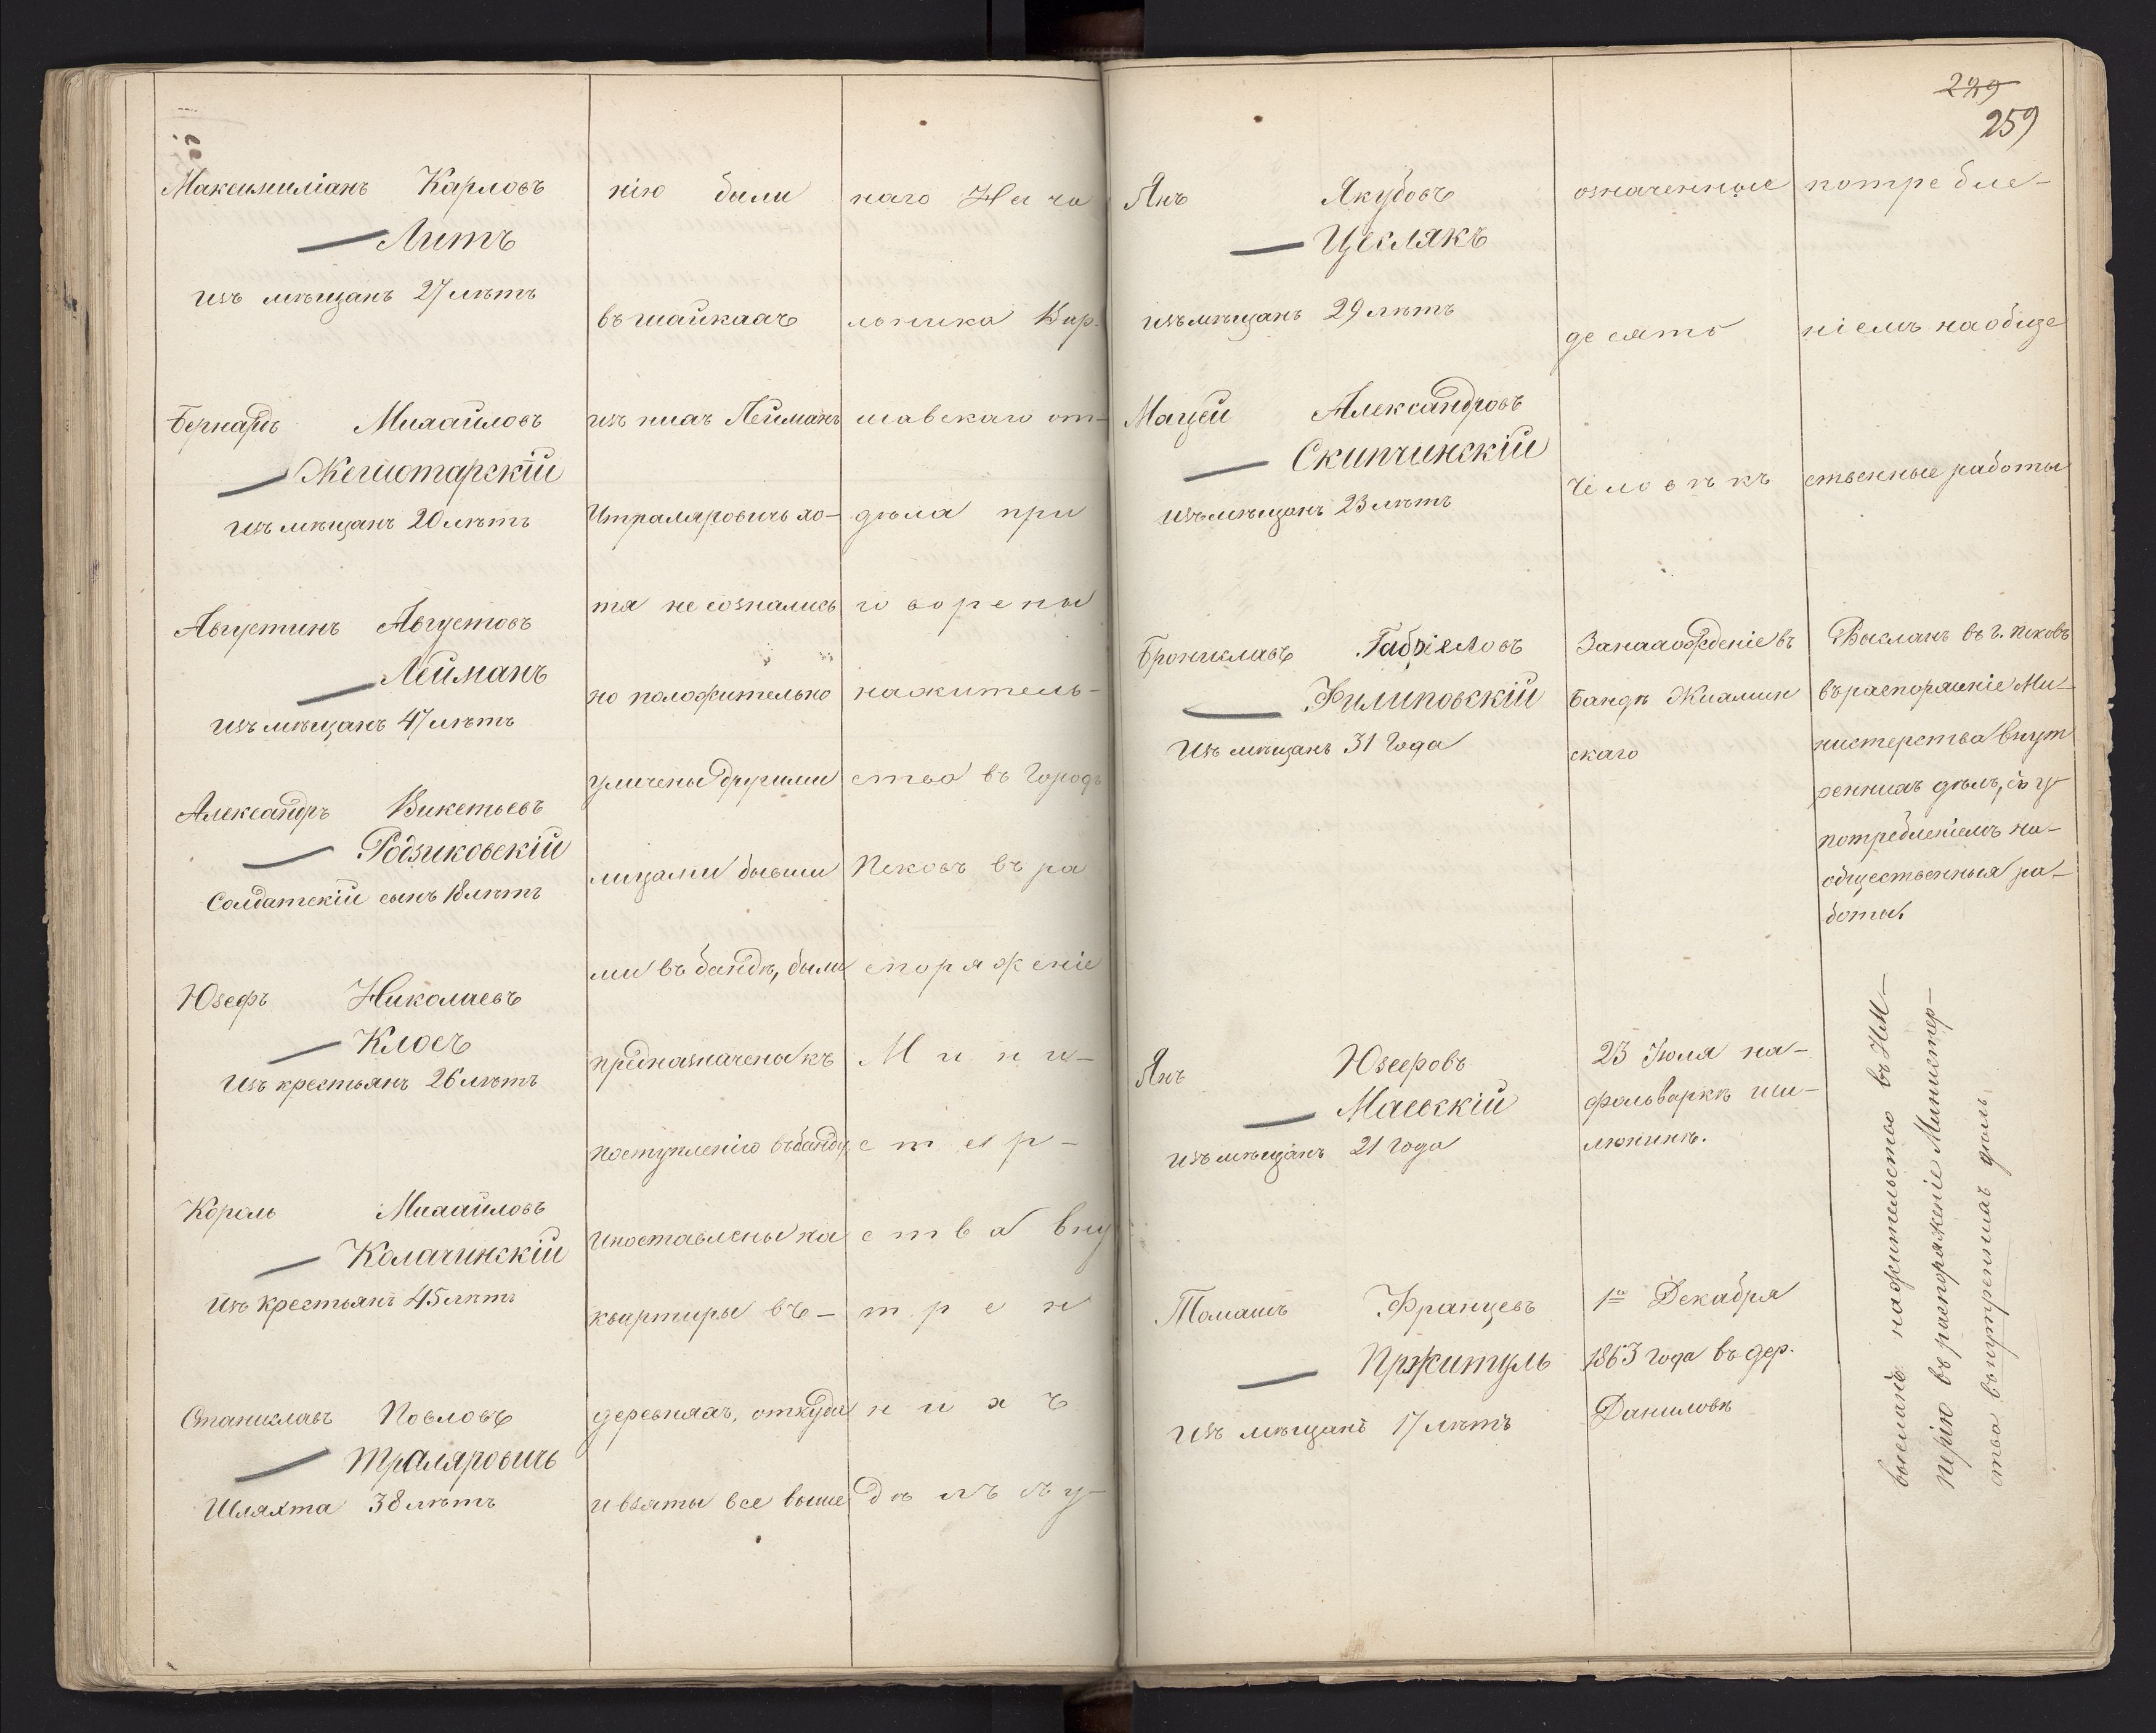 Максимиліанъ Карловъ
Литъ
изъ мѣщанъ 27 лѣтъ
Бернардъ Михайловъ
Жегиотарскій
изъ мѣщанъ 20 лѣтъ
Августинъ Августовъ
Лейманъ
изъ мѣщанъ 47 лѣтъ
Александръ Викетьевъ
Родзиковскій
Солдатскій сынъ 18 лѣтъ
Юзефъ Николаевъ
Клосъ
изъ крестьянъ 26 лѣтъ
Кароль Михайловъ
Колачинскій
изъ крестьянъ 45 лѣтъ
Станиславъ Павловъ
Траляровичъ
Шляхта 38 лѣтъ
нію были
въ шайкахъ
изъ нихъ Лейманъ
и Траляровичъ хо-
тя не сознались
но положительно
уличены другими
лицами бывши
ми въ бандѣ, были
предназначены къ
поступленію въ банду
и поставлены на
квартиры въ
деревняхъ, откуда
и взяты все выше
наго Нача
льника Вар-
шавскаго от-
дѣла при
говорены
на житель-
ство въ Городъ
Псковъ въ ра
споряженіе
Мини-
стер-
ства вну
трен
нихъ
дѣлъ съ у-
229
259
Янъ Якубовъ
Цеслякъ
изъ мѣщанъ 29 лѣтъ
Мацей Александровъ
Скипчинскій
изъ мѣщанъ 23 лѣтъ
Брониславъ Габріеловъ
Филиповскій
Изъ мѣщанъ 31 Года
Янъ Юзефовъ
Маевскій
изъ мѣщанъ 21 года
Томашъ Францевъ
Пржитуль
изъ мѣщанъ 17 лѣтъ
означенные
десять
человѣкъ
За нахожденіе въ
бандѣ Жиалин
скаго
23 Іюля на-
фольваркѣ
1го Декабря
1863 года въ дер.
Даниловѣ
потребле-
ніемъ на обще
ственные работы
Высланъ въ г. Псковъ
въ распоряженіе Ми-
нистерства Внут
реннихъ дѣлъ, съ у
потребленіемъ на-
общественныя ра-
боты.
высланъ на жительство въ ИМ-
перію въ распоряженіе Министер-
ства внутреннихъ дѣлъ